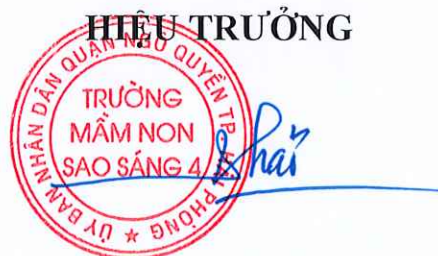 HIỆU TRƯỞNG
ỦY BAN NHÂN DÂN QUẬN NGÔ QUYỀN TP. HẢI PHÒNG
TRƯỜNG
MẦM NON
SAO SÁNG 4
Khải